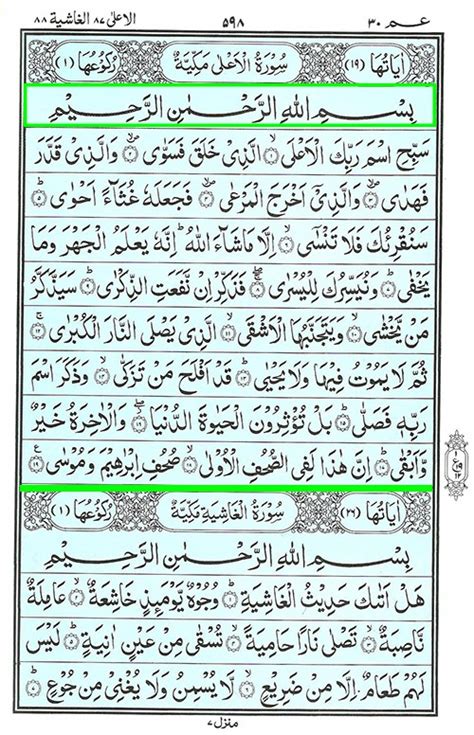 عم ٣٠ ٥٩٨ الاعلى ٨٧ الغاشية ٨٨
اٰيَاتُهَا (١٩) سُوْرَةُ الْاَعْلٰى مَكِّيَّةٌ رُكُوْعُهَا (١)
بِسْمِ اللّٰهِ الرَّحْمٰنِ الرَّحِيْمِ
سَبِّحِ اسْمَ رَبِّكَ الْاَعْلَى ۙ۝١ الَّذِىْ خَلَقَ فَسَوّٰى ۙ۝٢ وَالَّذِىْ قَدَّرَ
فَهَدٰى ۙ۝٣ وَالَّذِىْٓ اَخْرَجَ الْمَرْعٰى ۙ۝٤ فَجَعَلَهٗ غُثَآءً اَحْوٰى ؕ۝٥
سَنُقْرِئُكَ فَلَا تَنْسٰٓى ۙ۝٦ اِلَّا مَا شَآءَ اللّٰهُ ؕ اِنَّهٗ يَعْلَمُ الْجَهْرَ وَمَا
يَخْفٰى ؕ۝٧ وَنُيَسِّرُكَ لِلْيُسْرٰى ۚ۝٨ فَذَكِّرْ اِنْ نَّفَعَتِ الذِّكْرٰى ؕ۝٩ سَيَذَّكَّرُ
مَنْ يَّخْشٰى ۙ۝١٠ وَيَتَجَنَّبُهَا الْاَشْقَى ۙ۝١١ الَّذِىْ يَصْلَى النَّارَ الْكُبْرٰى ۚ۝١٢
ثُمَّ لَا يَمُوْتُ فِيْهَا وَلَا يَحْيٰى ؕ۝١٣ قَدْ اَفْلَحَ مَنْ تَزَكّٰى ۙ۝١٤ وَذَكَرَ اسْمَ
رَبِّهٖ فَصَلّٰى ؕ۝١٥ بَلْ تُؤْثِرُوْنَ الْحَيٰوةَ الدُّنْيَا ۖ۝١٦ وَالْاٰخِرَةُ خَيْرٌ
وَّاَبْقٰى ؕ۝١٧ اِنَّ هٰذَا لَفِى الصُّحُفِ الْاُوْلٰى ۙ۝١٨ صُحُفِ اِبْرٰهِيْمَ وَمُوْسٰى ۝١٩
ع ١ ١٩ ١٢
اٰيَاتُهَا (٢٦) سُوْرَةُ الْغَاشِيَةِ مَكِّيَّةٌ رُكُوْعُهَا (١)
بِسْمِ اللّٰهِ الرَّحْمٰنِ الرَّحِيْمِ
هَلْ اَتٰىكَ حَدِيْثُ الْغَاشِيَةِ ؕ۝١ وُجُوْهٌ يَّوْمَئِذٍ خَاشِعَةٌ ۙ۝٢ عَامِلَةٌ
نَّاصِبَةٌ ۙ۝٣ تَصْلٰى نَارًا حَامِيَةً ۙ۝٤ تُسْقٰى مِنْ عَيْنٍ اٰنِيَةٍ ؕ۝٥ لَيْسَ
لَهُمْ طَعَامٌ اِلَّا مِنْ ضَرِيْعٍ ۙ۝٦ لَّا يُسْمِنُ وَلَا يُغْنِىْ مِنْ جُوْعٍ ؕ۝٧
منزل ٧